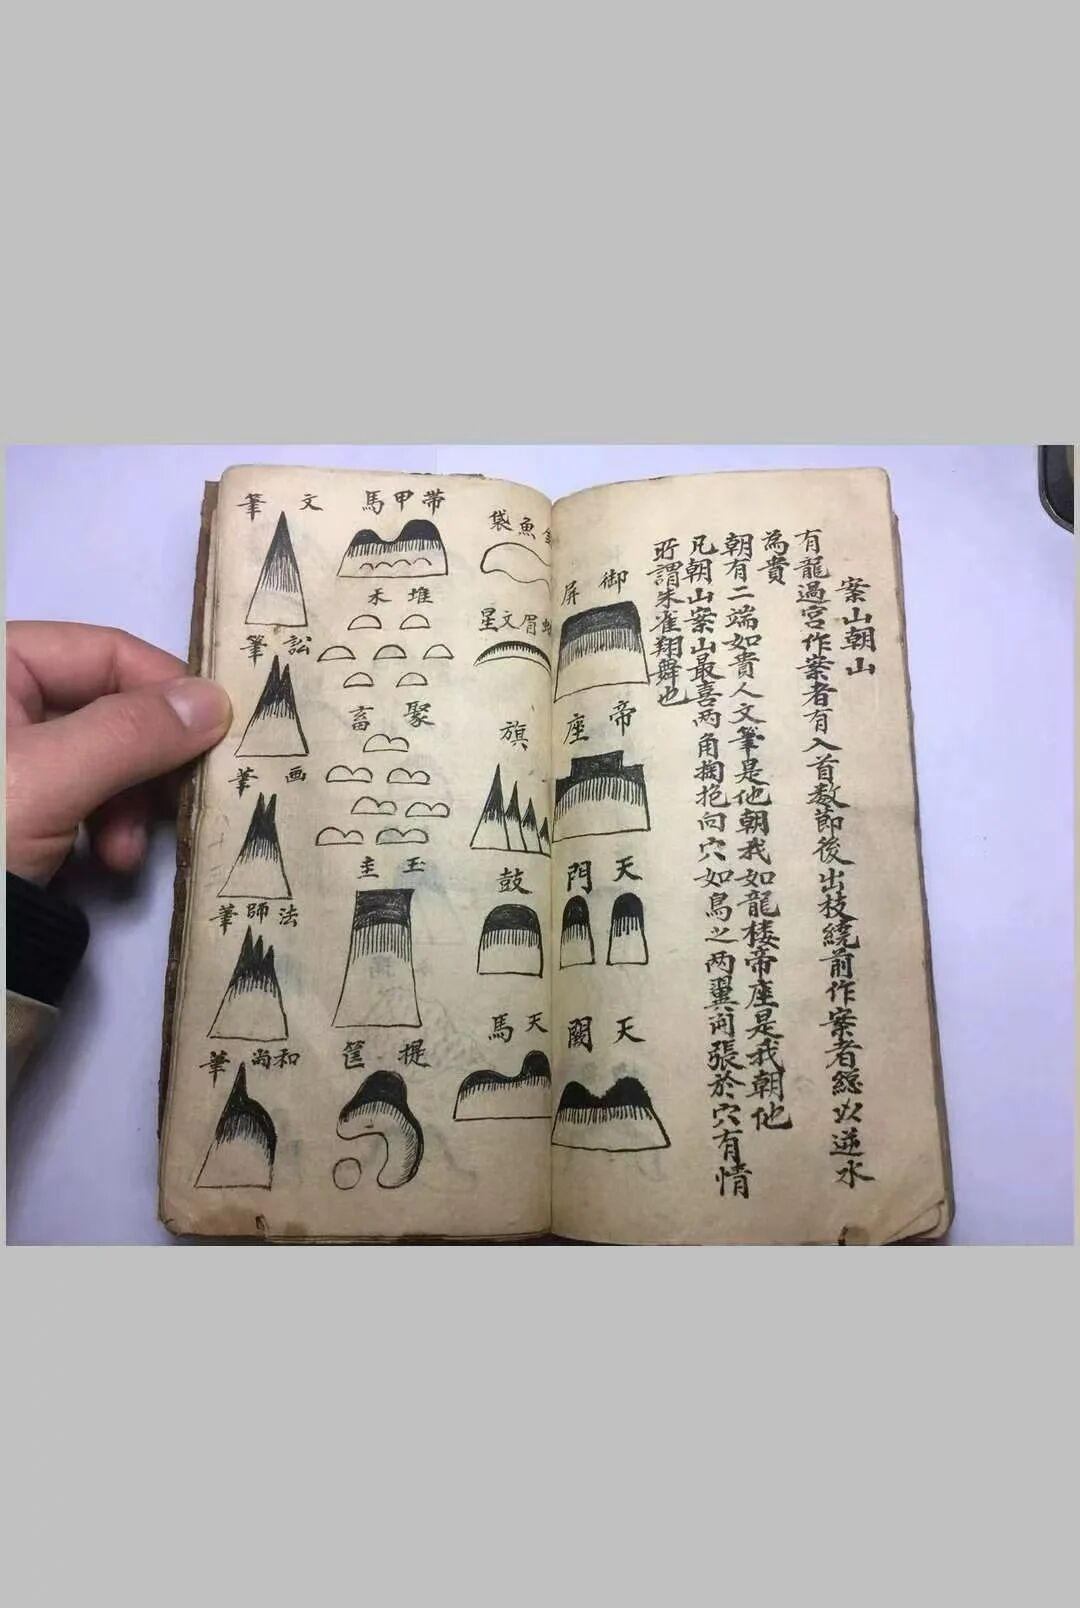 案山朝山
有龍過宮作案者有入首数節後出枝繞前作案者總以逆水
為貴
朝有二端如貴人文筆是他朝我如龍楼帝座是我朝他
凡朝山案山最喜两角掬抱向穴如鳥之两翼開張於穴有情
所謂朱雀翔舞也
御屏
帝座
天門
天闕
魚袋
眉文星
旗
鼓
天馬
帶甲馬
堆禾
聚畜
玉圭
提筐
文筆
訟筆
画筆
法師筆
和尚筆